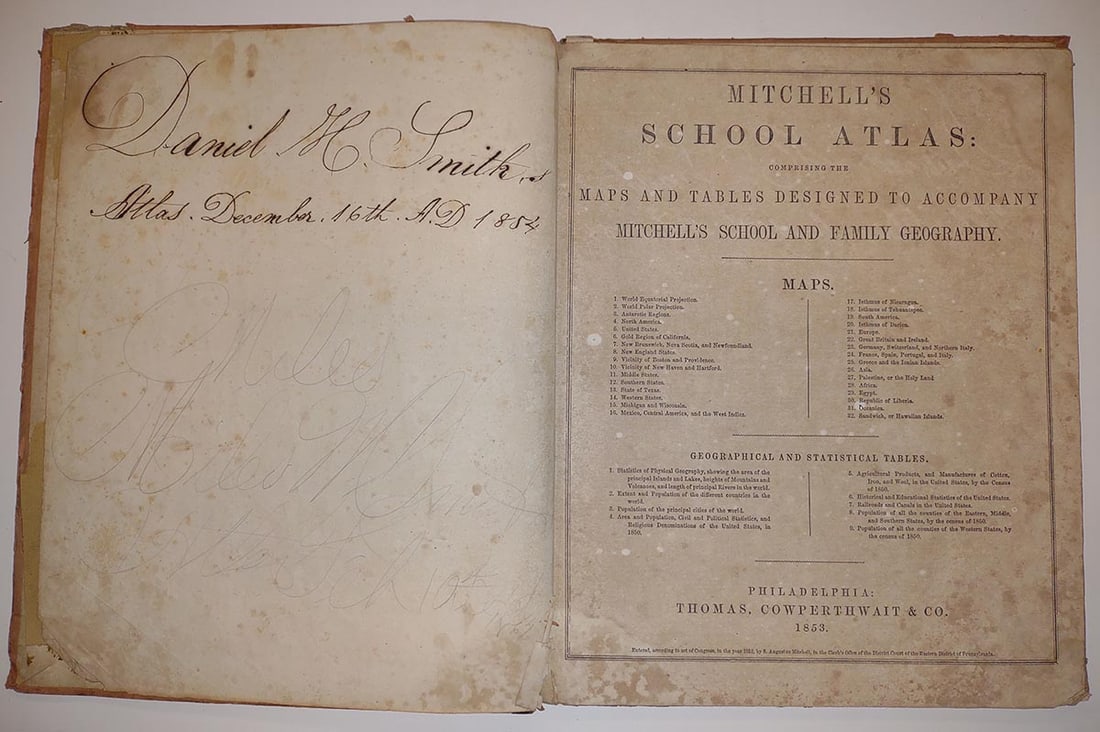 Daniel H. Smith,s
Atlas. December. 16th. A.D 1854
10th
MITCHELL'S
SCHOOL ATLAS:
COMPRISING THE
MAPS AND TABLES DESIGNED TO ACCOMPANY
MITCHELL'S SCHOOL AND FAMILY GEOGRAPHY.
MAPS.
1. World Equatorial Projection.
2. World Polar Projection.
3. Antarctic Regions.
4. North America.
5. United States.
6. Gold Region of California.
7. New Brunswick, Nova Scotia, and Newfoundland.
8. New England States.
9. Vicinity of Boston and Providence.
10. Vicinity of New Haven and Hartford.
11. Middle States.
12. Southern States.
13. State of Texas.
14. Western States.
15. Michigan and Wisconsin.
16. Mexico, Central America, and the West Indies.
17. Isthmus of Nicaragua.
18. Isthmus of Tehuantepec.
19. South America.
20. Isthmus of Darien.
21. Europe.
22. Great Britain and Ireland.
23. Germany, Switzerland, and Northern Italy.
24. France, Spain, Portugal, and Italy.
25. Greece and the Ionian Islands.
26. Asia.
27. Palestine, or the Holy Land
28. Africa.
29. Egypt.
30. Republic of Liberia.
31. Oceanica.
32. Sandwich, or Hawaiian Islands.
GEOGRAPHICAL AND STATISTICAL TABLES.
1. Statistics of Physical Geography, showing the area of the
principal Islands and Lakes, heights of Mountains and
Volcanoes, and length of principal Rivers in the world.
2. Extent and Population of the different countries in the
world.
3. Population of the principal cities of the world.
4. Area and Population, Civil and Political Statistics, and
Religious Denominations of the United States, in
1850.
5. Agricultural Products, and Manufactures of Cotton,
Iron, and Wool, in the United States, by the Census
of 1850.
6. Historical and Educational Statistics of the United States.
7. Railroads and Canals in the United States.
8. Population of all the counties of the Eastern, Middle,
and Southern States, by the census of 1850.
9. Population of all the counties of the Western States, by
the census of 1850.
PHILADELPHIA:
THOMAS, COWPERTHWAIT & CO.
1853.
Entered, according to act of Congress, in the year 1852, by S. Augustus Mitchell, in the Clerk's Office of the District Court of the Eastern District of Pennsylvania.